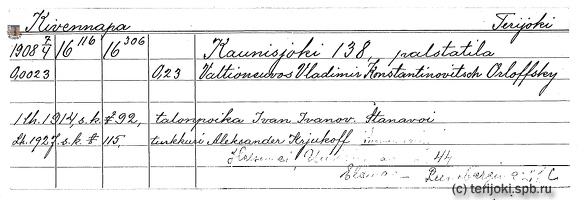 Kivennapa Terijoki
1908 7/4 16 116 16 306 Kaunisjoki 138 palstatila
0,0023 0,23 Valtioneuvos Vladimir Konstantinovitsch Orloffsky
1 lh. 1914, s.k. # 92, talonpoika Ivan Ivanov. Stanavoi
Lh. 1927, s.k. # 115, turkkuri Aleksander Krjukoff
44
(c) terijoki.spb.ru